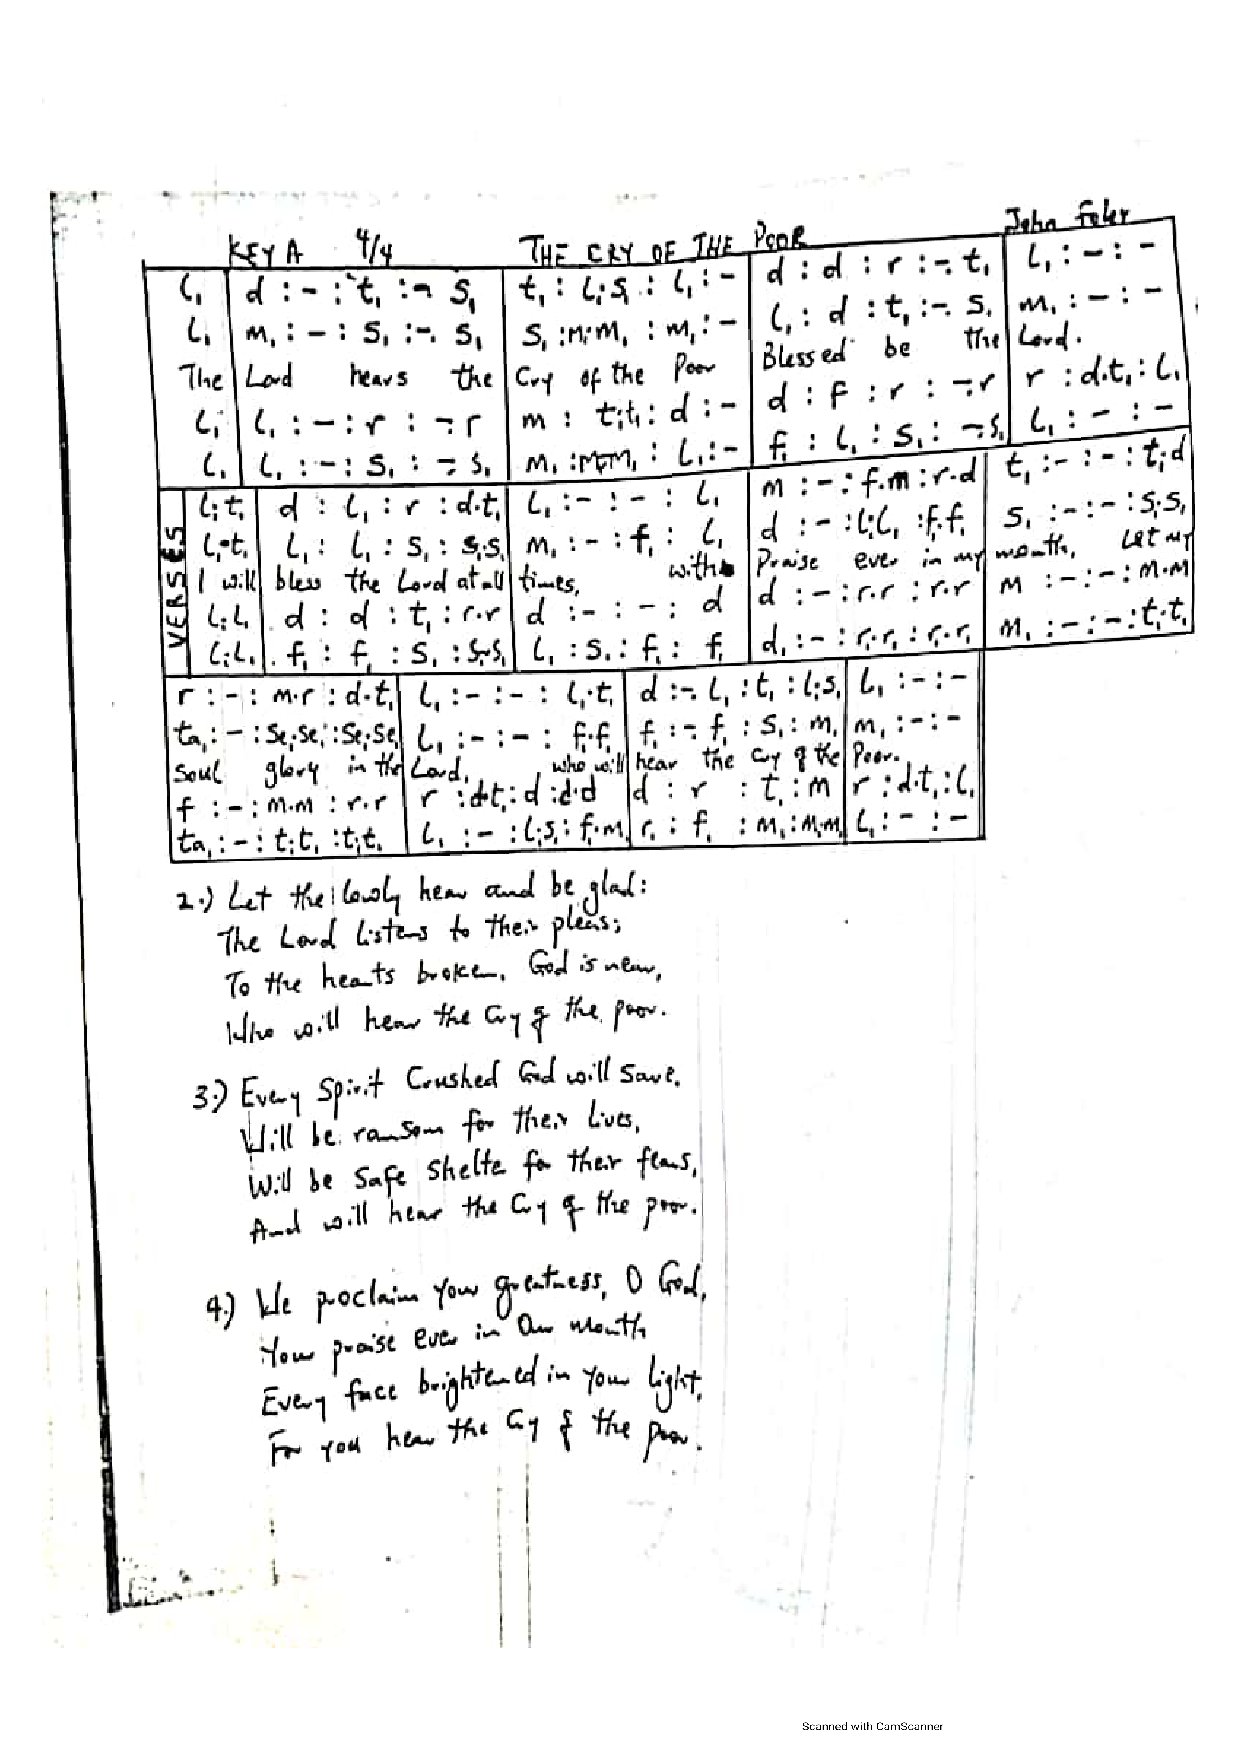 John Foley
KEY A 4/4 THE CRY OF THE POOR
l₁ | d : - : t₁ :-. s₁ | t₁ : l₁.s₁ : l₁ :- | d : d : r :-. t₁ | l₁ : - : -
l₁ | m₁ : - : s₁ :-. s₁ | s₁ :m₁.m₁ : m₁ :- | l₁ : d : t₁ :-. s₁ | m₁ : - : -
The | Lord hears the | Cry of the Poor | Blessed be the | Lord.
l₁ | l₁ : - : r : -. r | m : t₁.t₁ : d : - | d : f : r : -. r | r : d.t₁ : l₁
l₁ | l₁ : - : s₁ : -. s₁ | m₁ :m₁.m₁ : l₁ :- | f₁ : l₁ : s₁ : -. s₁ | l₁ : - : -
VERSES
l₁.t₁ | d : l₁ : r : d.t₁ | l₁ :- : - : l₁ | m : - : f.m : r.d | t₁ : - : - : t₁.d
l₁.t₁ | l₁ : l₁ : s₁ : s₁.s₁ | m₁ : - : f₁ : l₁ | d : - : l₁.l₁ : f₁.f₁ | s₁ : - : - : s₁.s₁
I will | bless the Lord at all | times, with | Praise ever in my | mouth, Let my
l₁.l₁ | d : d : t₁ : r.r | d : - : - : d | d : - : r.r : r.r | m : - : - : m.m
l₁.l₁ | f₁ : f₁ : s₁ : s₁.s₁ | l₁ : s₁ : f₁ : f₁ | d₁ : - : r₁.r₁ : r₁.r₁ | m₁ : - : - : t₁.t₁
r : - : m.r : d.t₁ | l₁ : - : - : l₁.t₁ | d :-. l₁ : t₁ : l₁.s₁ | l₁ : - : -
ta₁ : - : se₁.se₁ : se₁.se₁ | l₁ : - : - : f₁.f₁ | f₁ :-. f₁ : s₁ : m₁ | m₁ : - : -
soul glory in the | Lord, who will | hear the cry of the | Poor.
f : - : m.m : r.r | r : d.t₁ : d : d.d | d : r : t₁ : m | r : d.t₁ : l₁
ta₁ : - : t₁.t₁ : t₁.t₁ | l₁ : - : l₁.s₁ : f₁.m₁ | r₁ : f₁ : m₁ : m₁.m₁ | l₁ : - : -
2.) Let the lowly hear and be glad:
The Lord listens to their pleas;
To the hearts broken, God is near,
Who will hear the Cry of the poor.
3.) Every Spirit Crushed God will Save,
Will be ransom for their Lives,
Will be Safe Shelte for their fears,
And will hear the Cry of the poor.
4.) We proclaim your greatness, O God,
Your praise ever in Our mouth
Every face brightened in your light,
For you hear the Cry of the poor.
Scanned with CamScanner